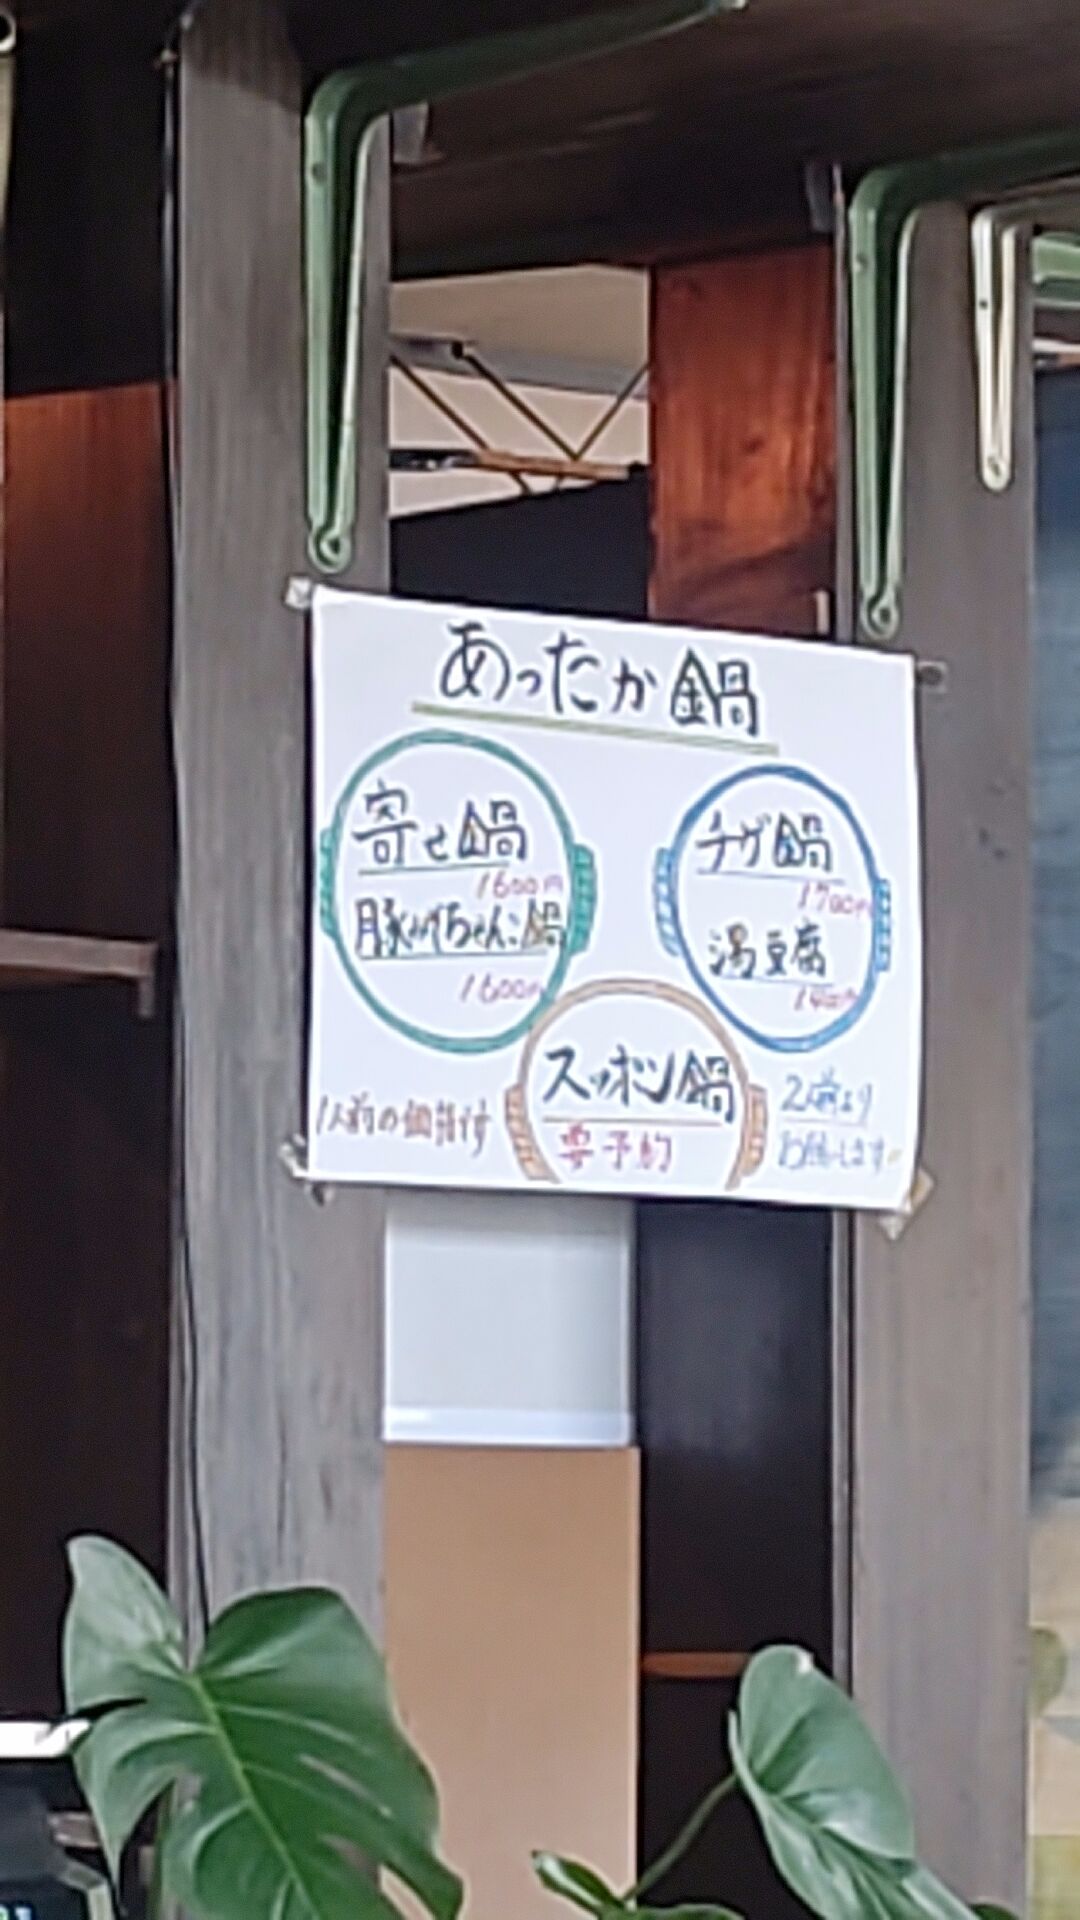 あったか鍋
寄せ鍋
1600円
豚バラちゃんこ鍋
1600円
チゲ鍋
1700円
湯豆腐
1400円
スッポン鍋
要予約
1人前の価格です
2人前より
お願いします